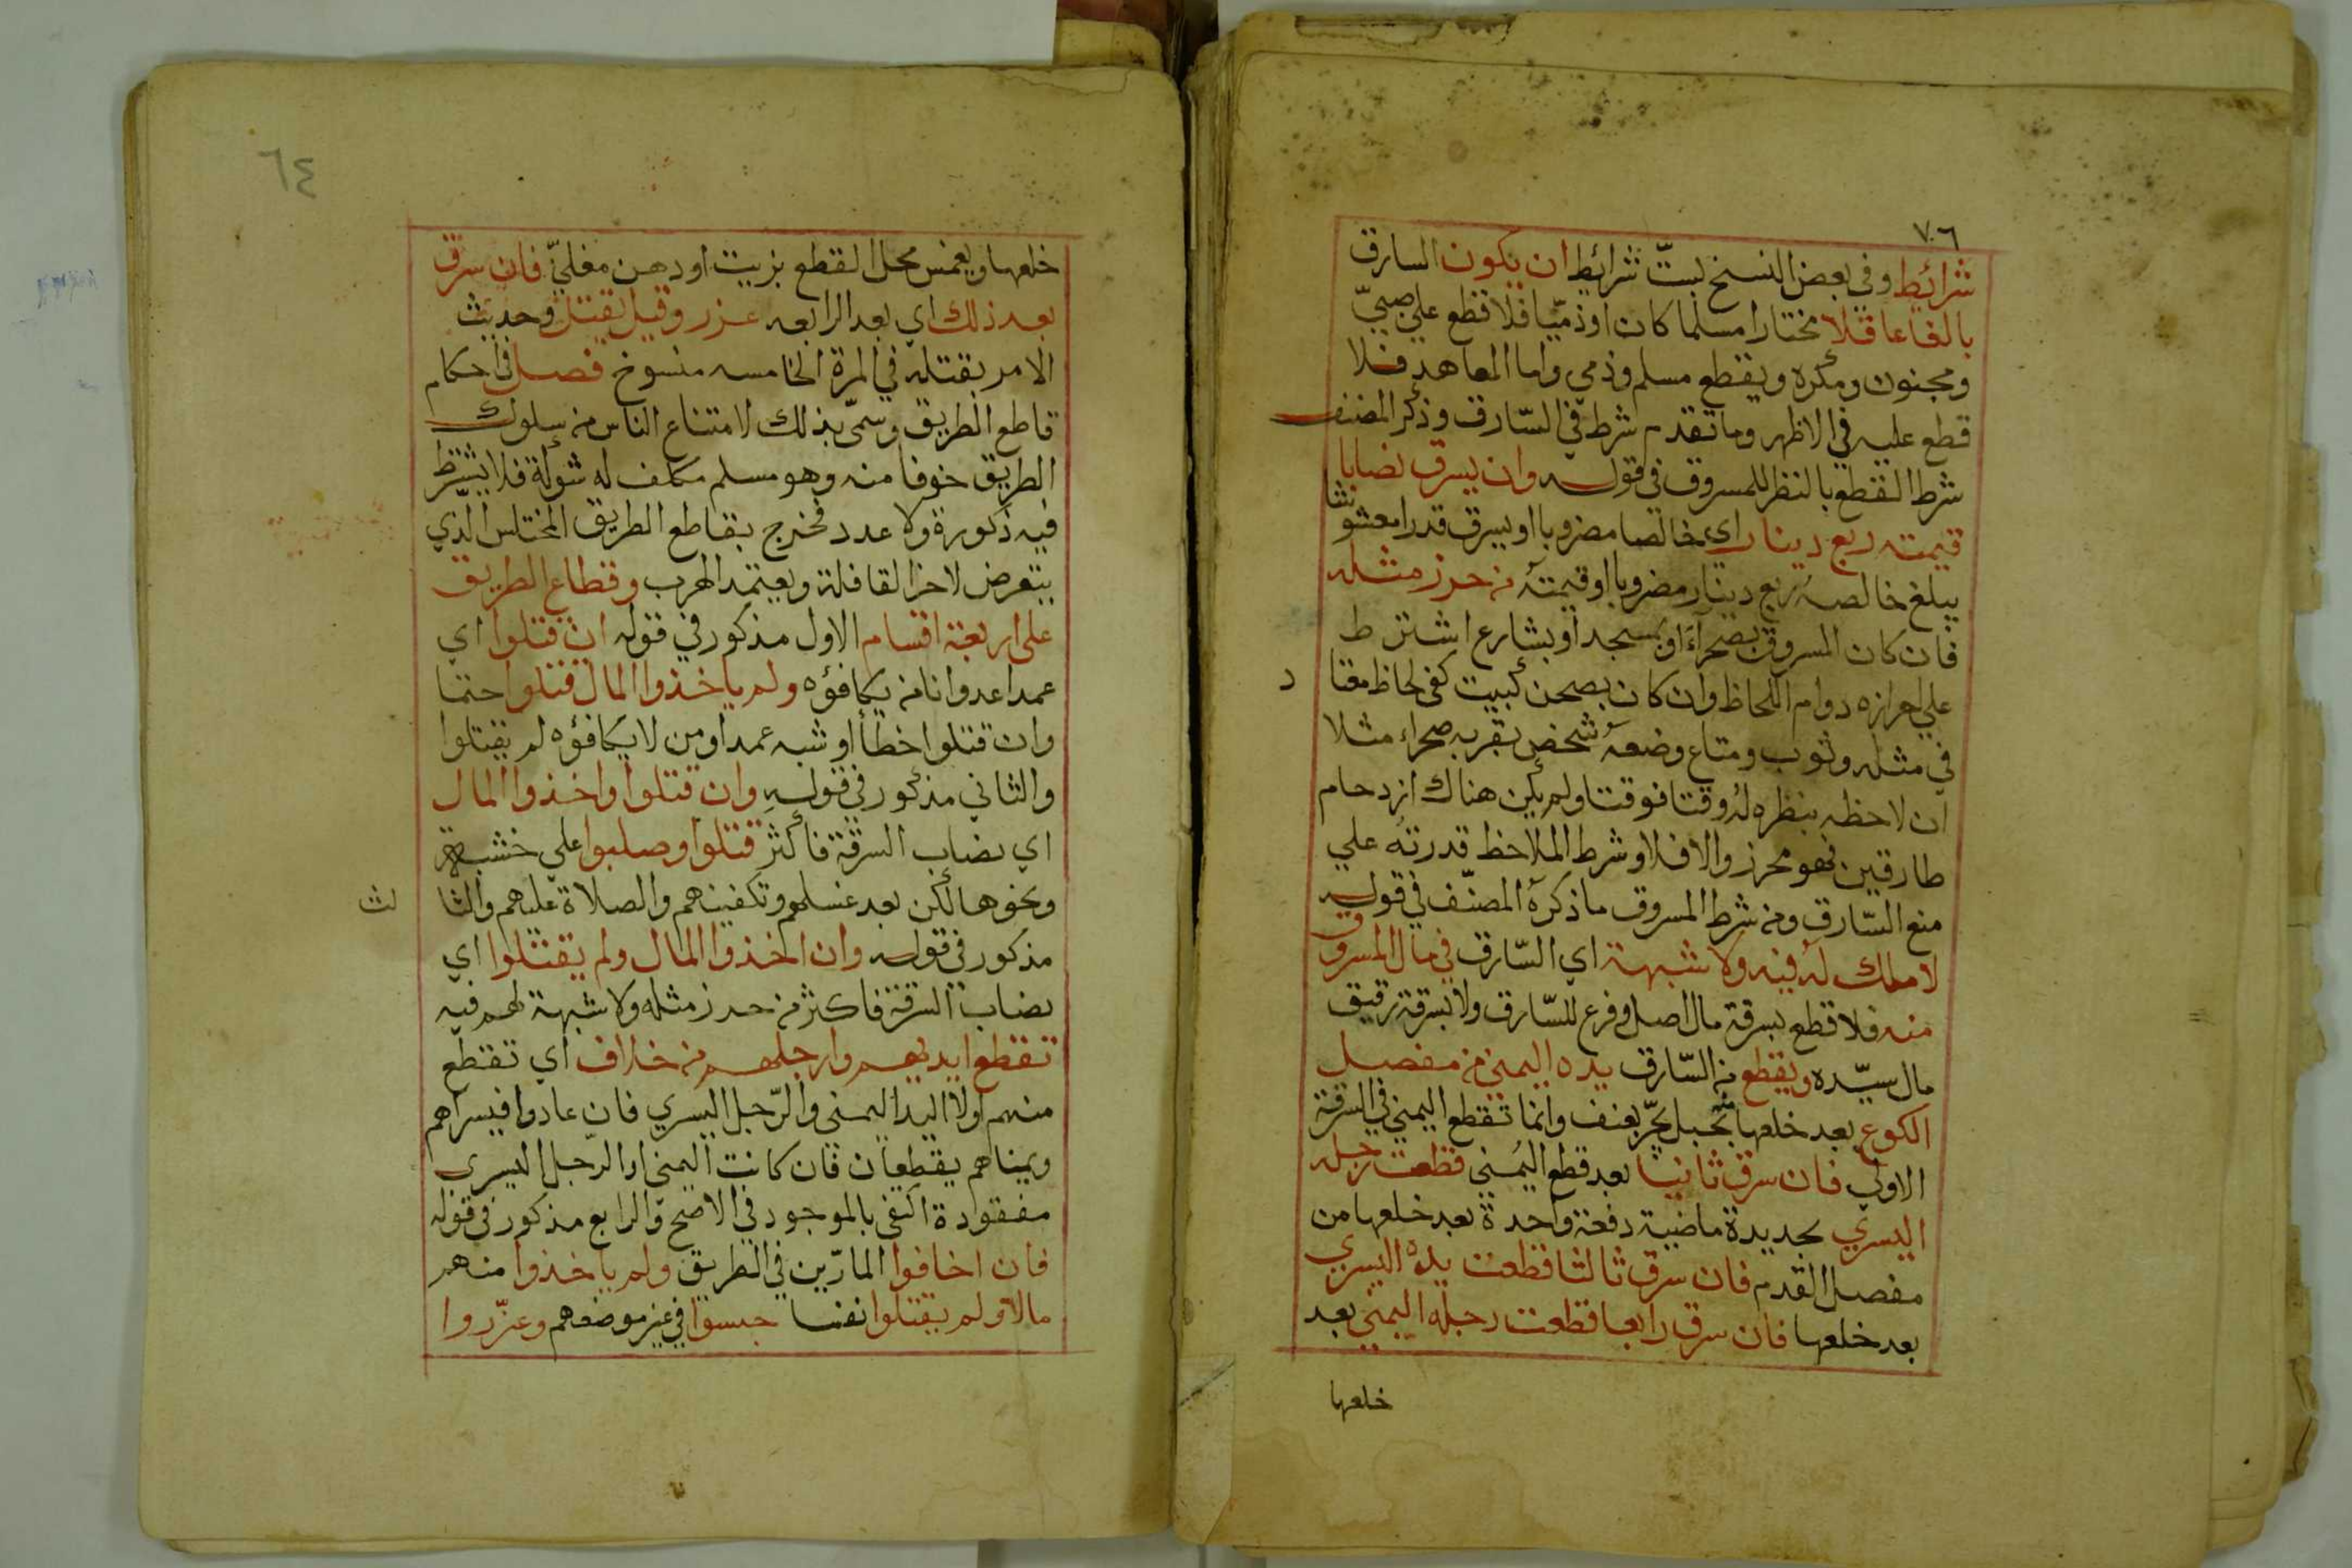 ٧٠٦
شرائط وفي بعض النسخ بستّ شرائط ان يكون السارق
بالغا عاقلا مختارا مسلما كان او ذمّيا فلا قطع علي صبيّ
ومجنون ومكره ويقطع مسلم وذمي واما المعاهد فلا
قطع عليه في الاظهر وما تقدم شرط في السّارق وذكر المصنف
شرط القطع بالنظر للمسروق في قوله وان يسرق نصابا
قيمته ربع دينار اي خالصا مضروبا او يسرق قدرا مغشوشا
يبلغ خالصه ربع دينار مضروبا او قيمته من حرز مثله
فان كان المسروق بصحراء او بمسجد او بشارع اشترط
علي احرازه دوام اللحاظ وان كان بصحن كبيت كفي لحاظ معتاد
في مثله وثوب ومتاع وضعه شخص بقربه صحراء مثلا
ان لاحظه بنظره له وقتا فوقتا ولم يكن هناك ازدحام
طارقين فهو محرز والا فلا وشرط الملاحظ قدرته علي
منع السّارق ومن شرط المسروق ما ذكره المصنّف في قوله
لا ملك له فيه ولا شبهة اي السّارق في مال المسروق
منه فلا قطع بسرقة مال اصل وفرع للسّارق ولا بسرقة رقيق
مال سيّده ويقطع من السّارق يده اليمني من مفصل
الكوع بعد خلعها منه بحبل يجرّ بعنف وانما تقطع اليمني في السرقة
الاولي فان سرق ثانيا بعد قطع اليُمني قطعت رجله
اليسري بحديدة ماضية دفعة واحدة بعد خلعها من
مفصل القدم فان سرق ثالثا قطعت يده اليسري
بعد خلعها فان سرق رابعا قطعت رجله اليمني بعد
خلعها
٦٤
خلعها ويغمس محل القطع بزيت او دهن مغليّ فان سرق
بعد ذلك اي بعد الرابعه عزر وقيل يقتل وحديث
الامر بقتله في المرة الخامسه منسوخ فصل في احكام
قاطع الطريق وسمّي بذلك لامتناع الناس من سلوك
الطريق خوفا منه وهو مسلم مكلف له شوكة فلا يشترط
فيه ذكورة ولا عدد فخرج بقاطع الطريق المختلس الذي
يتعرض لاخر القافلة ويعتمد الهرب وقطاع الطريق
على اربعة اقسام الاول مذكور في قوله ان قتلوا اي
عمدا عدوانا من يكافؤه ولم ياخذوا المال قتلوا حتما
وان قتلوا خطأ او شبه عمد او من لا يكافؤه لم يقتلوا
والثاني مذكور في قوله وان قتلوا واخذوا المال
اي نصاب السرقة فأكثر قتلوا وصلبوا علي خشبة
ونحوها لكن بعد غسلهم وتكفينهم والصلاة عليهم والثالث
مذكور في قوله وان اخذوا المال ولم يقتلوا اي
نصاب السرقة فاكثر من حرز مثله ولا شبهة لهم فيه
تقطع ايديهم وارجلهم من خلاف اي تقطع
منهم اولا اليد اليمني والرّجل اليسري فان عادوا فيسراهم
ويمناهم يقطعان فان كانت اليمني او الرّجل اليسري
مفقودة اكتفي بالموجود في الاصح والرابع مذكور في قوله
فان اخافوا المارّين في الطريق ولم ياخذوا منهم
مالا ولم يقتلوا نفسا حبسوا في غير موضعهم وعزّروا